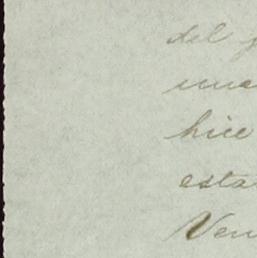 del
una
hice
esta
Ven